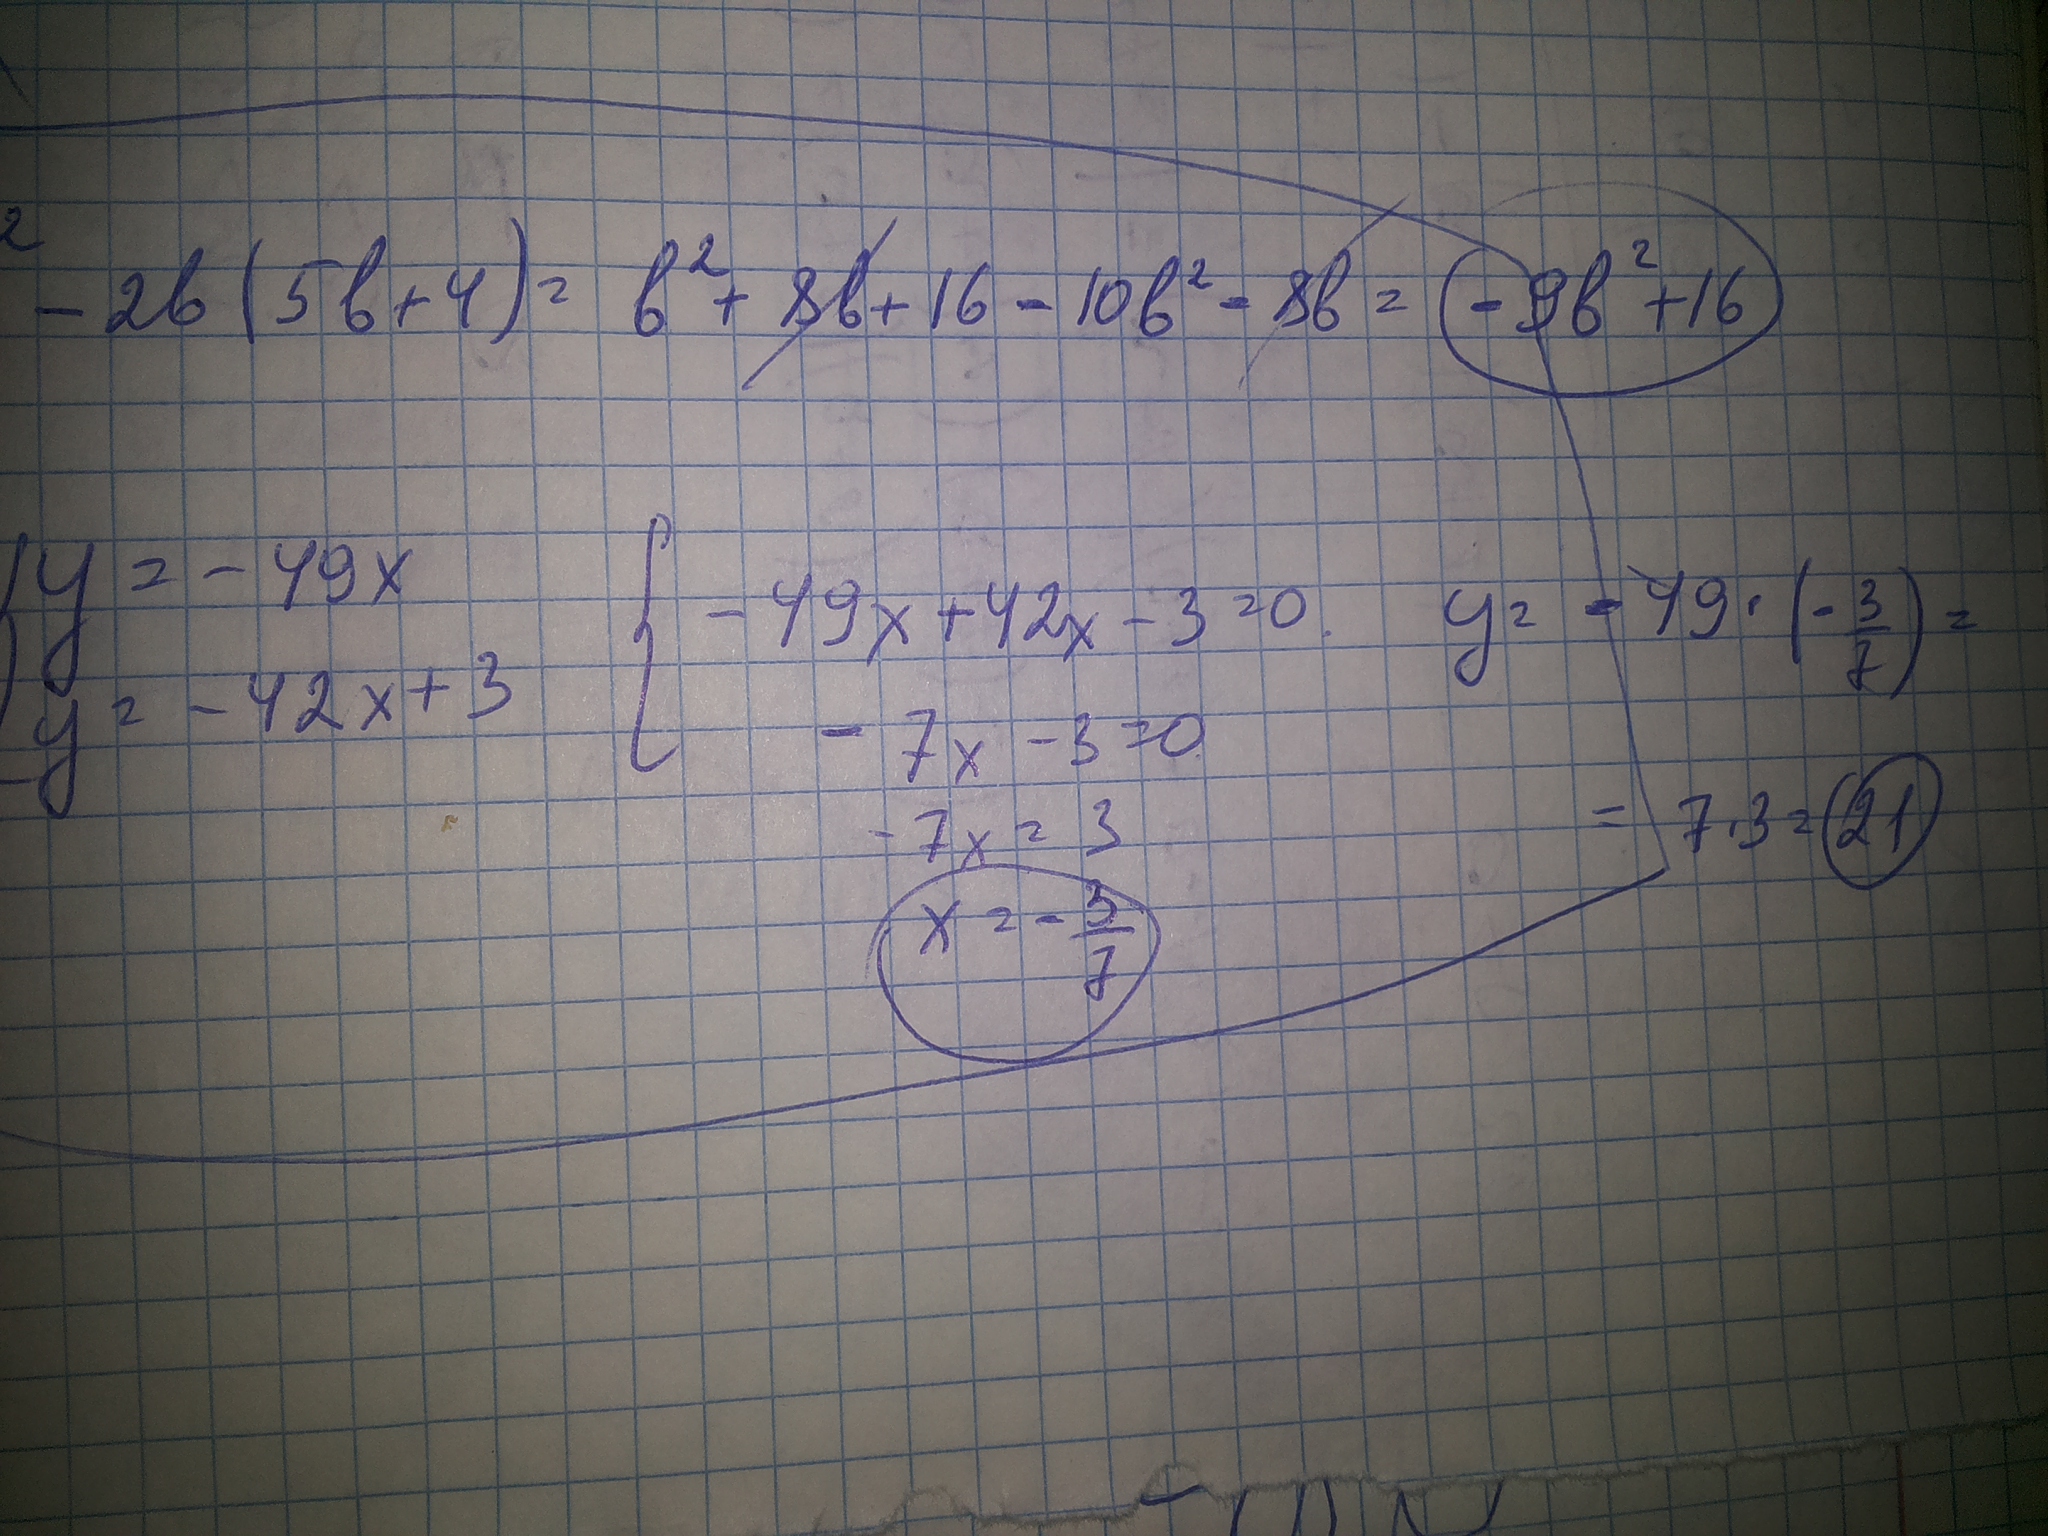 ² - 2b(5b+4) = b² + 8b + 16 - 10b² - 8b = -9b² + 16
{ y = -49x
y = -42x + 3
{ -49x + 42x - 3 = 0
-7x - 3 = 0
-7x = 3
x = -3/7
y = -49 · (-3/7) =
= 7·3 = 21